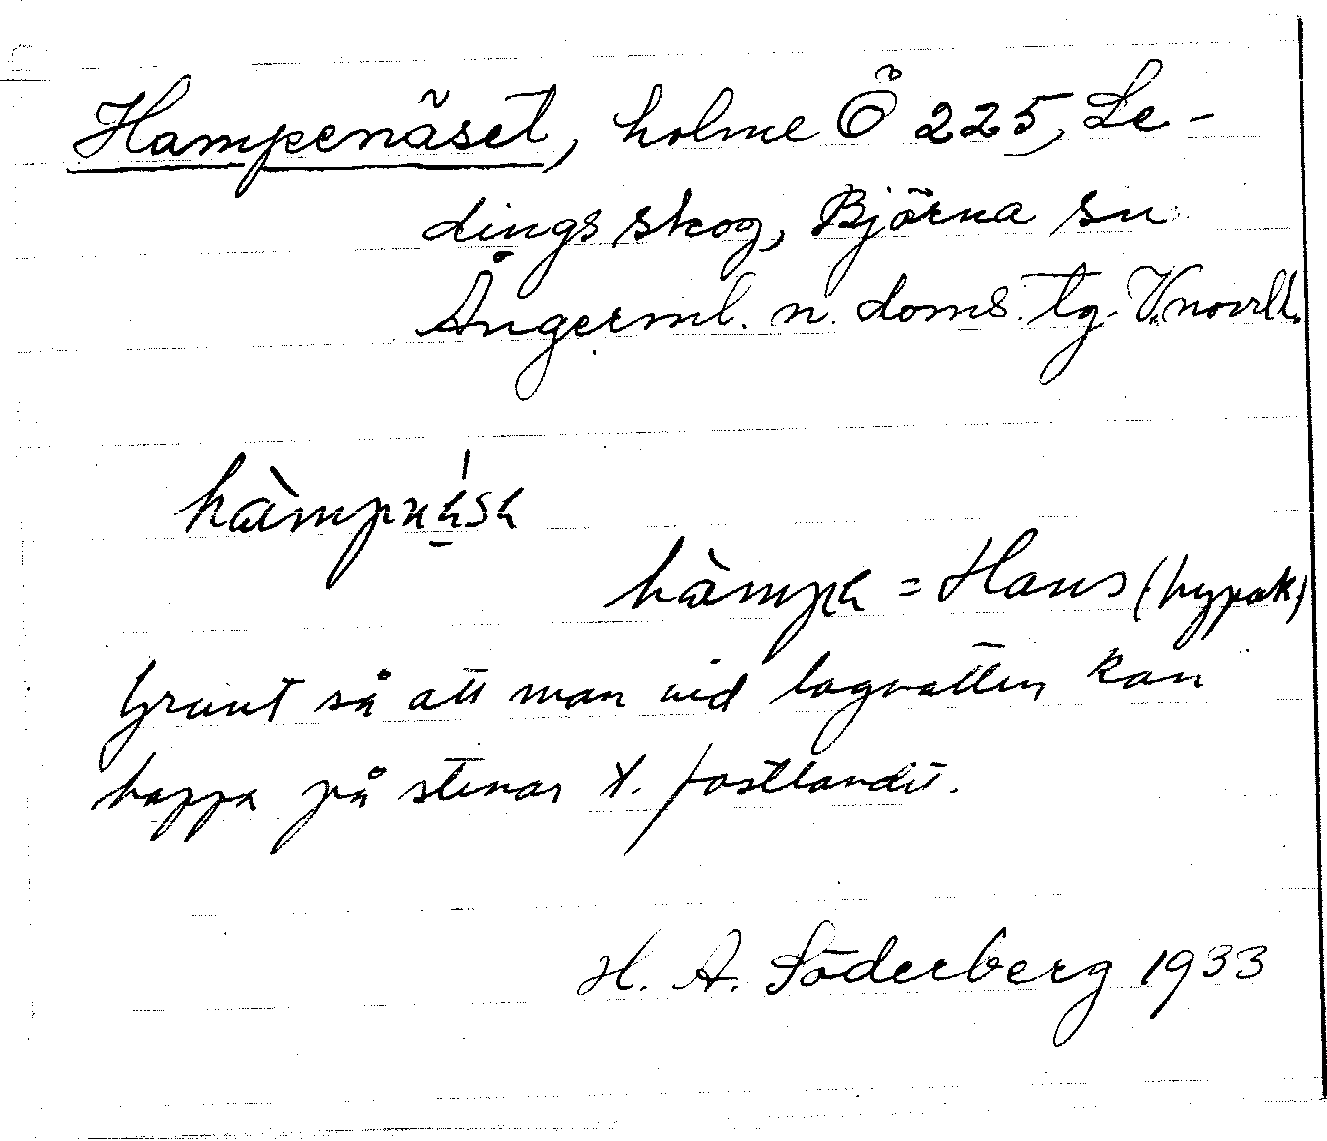 Hampenäset, holme Ö 225, Le-
dingsskog, Björna sn
Ångerml. n. doms. tg. V.norrl.
hàmpnǽsɐ
hàmpɐ = Hans (hypok)
Grunt så att man vid lagvatten kan
hoppa på stenar t. fastlandet.
H. A. Söderberg 1933